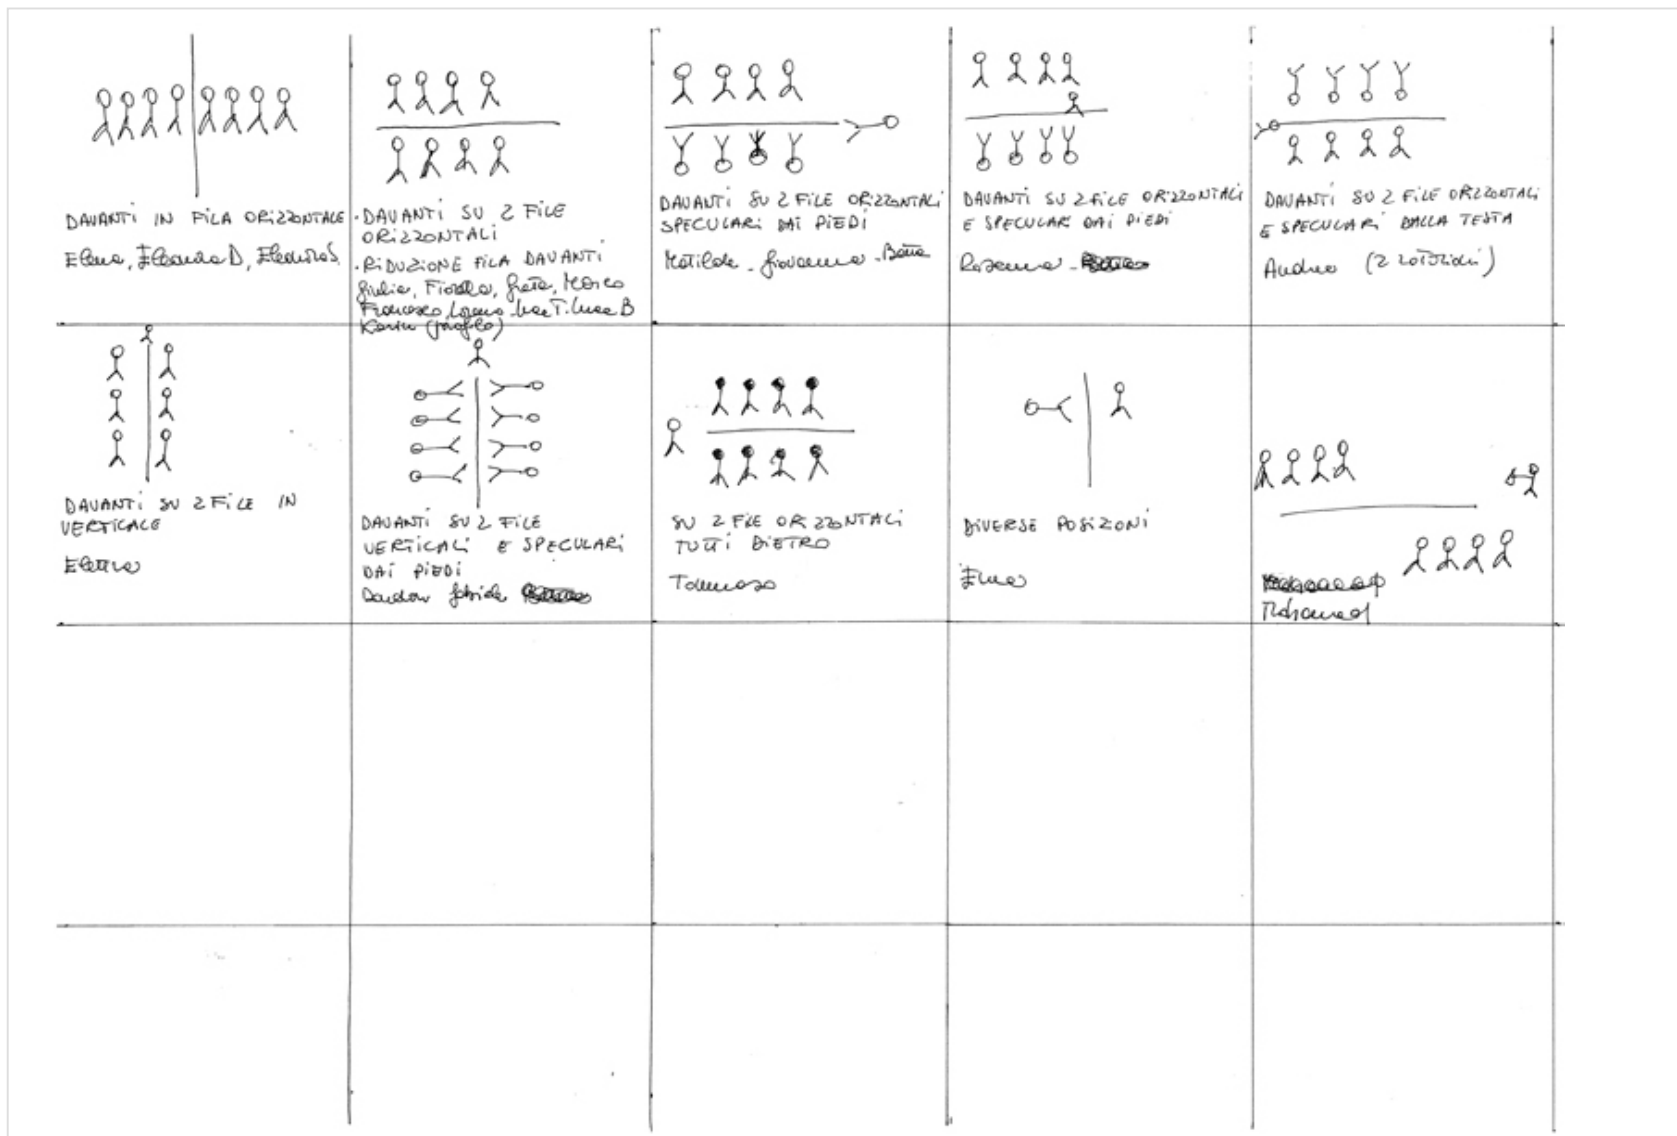 DAVANTI IN FILA ORIZZONTALE
Elena, Eleonora D, Eleonora S.
. DAVANTI SU 2 FILE
ORIZZONTALI
. RIDUZIONE FILA DAVANTI
Giulia, Fiorella, Greta, Marco
Francesco, Luca T. Luca B
Karin (profilo)
DAVANTI SU 2 FILE ORIZZONTALI
SPECULARI DAI PIEDI
Matilde - Giovanna -
DAVANTI SU 2 FILE ORIZZONTALI
E SPECULARI DAI PIEDI
Rosanna -
DAVANTI SU 2 FILE ORIZZONTALI
E SPECULARI DALLA TESTA
Andrea (2 rotazioni)
DAVANTI SU 2 FILE IN
VERTICALE
Elettra
DAVANTI SU 2 FILE
VERTICALI E SPECULARI
DAI PIEDI
Gabriele
SU 2 FILE ORIZZONTALI
TUTTI DIETRO
Tommaso
DIVERSE POSIZONI
Mohamed